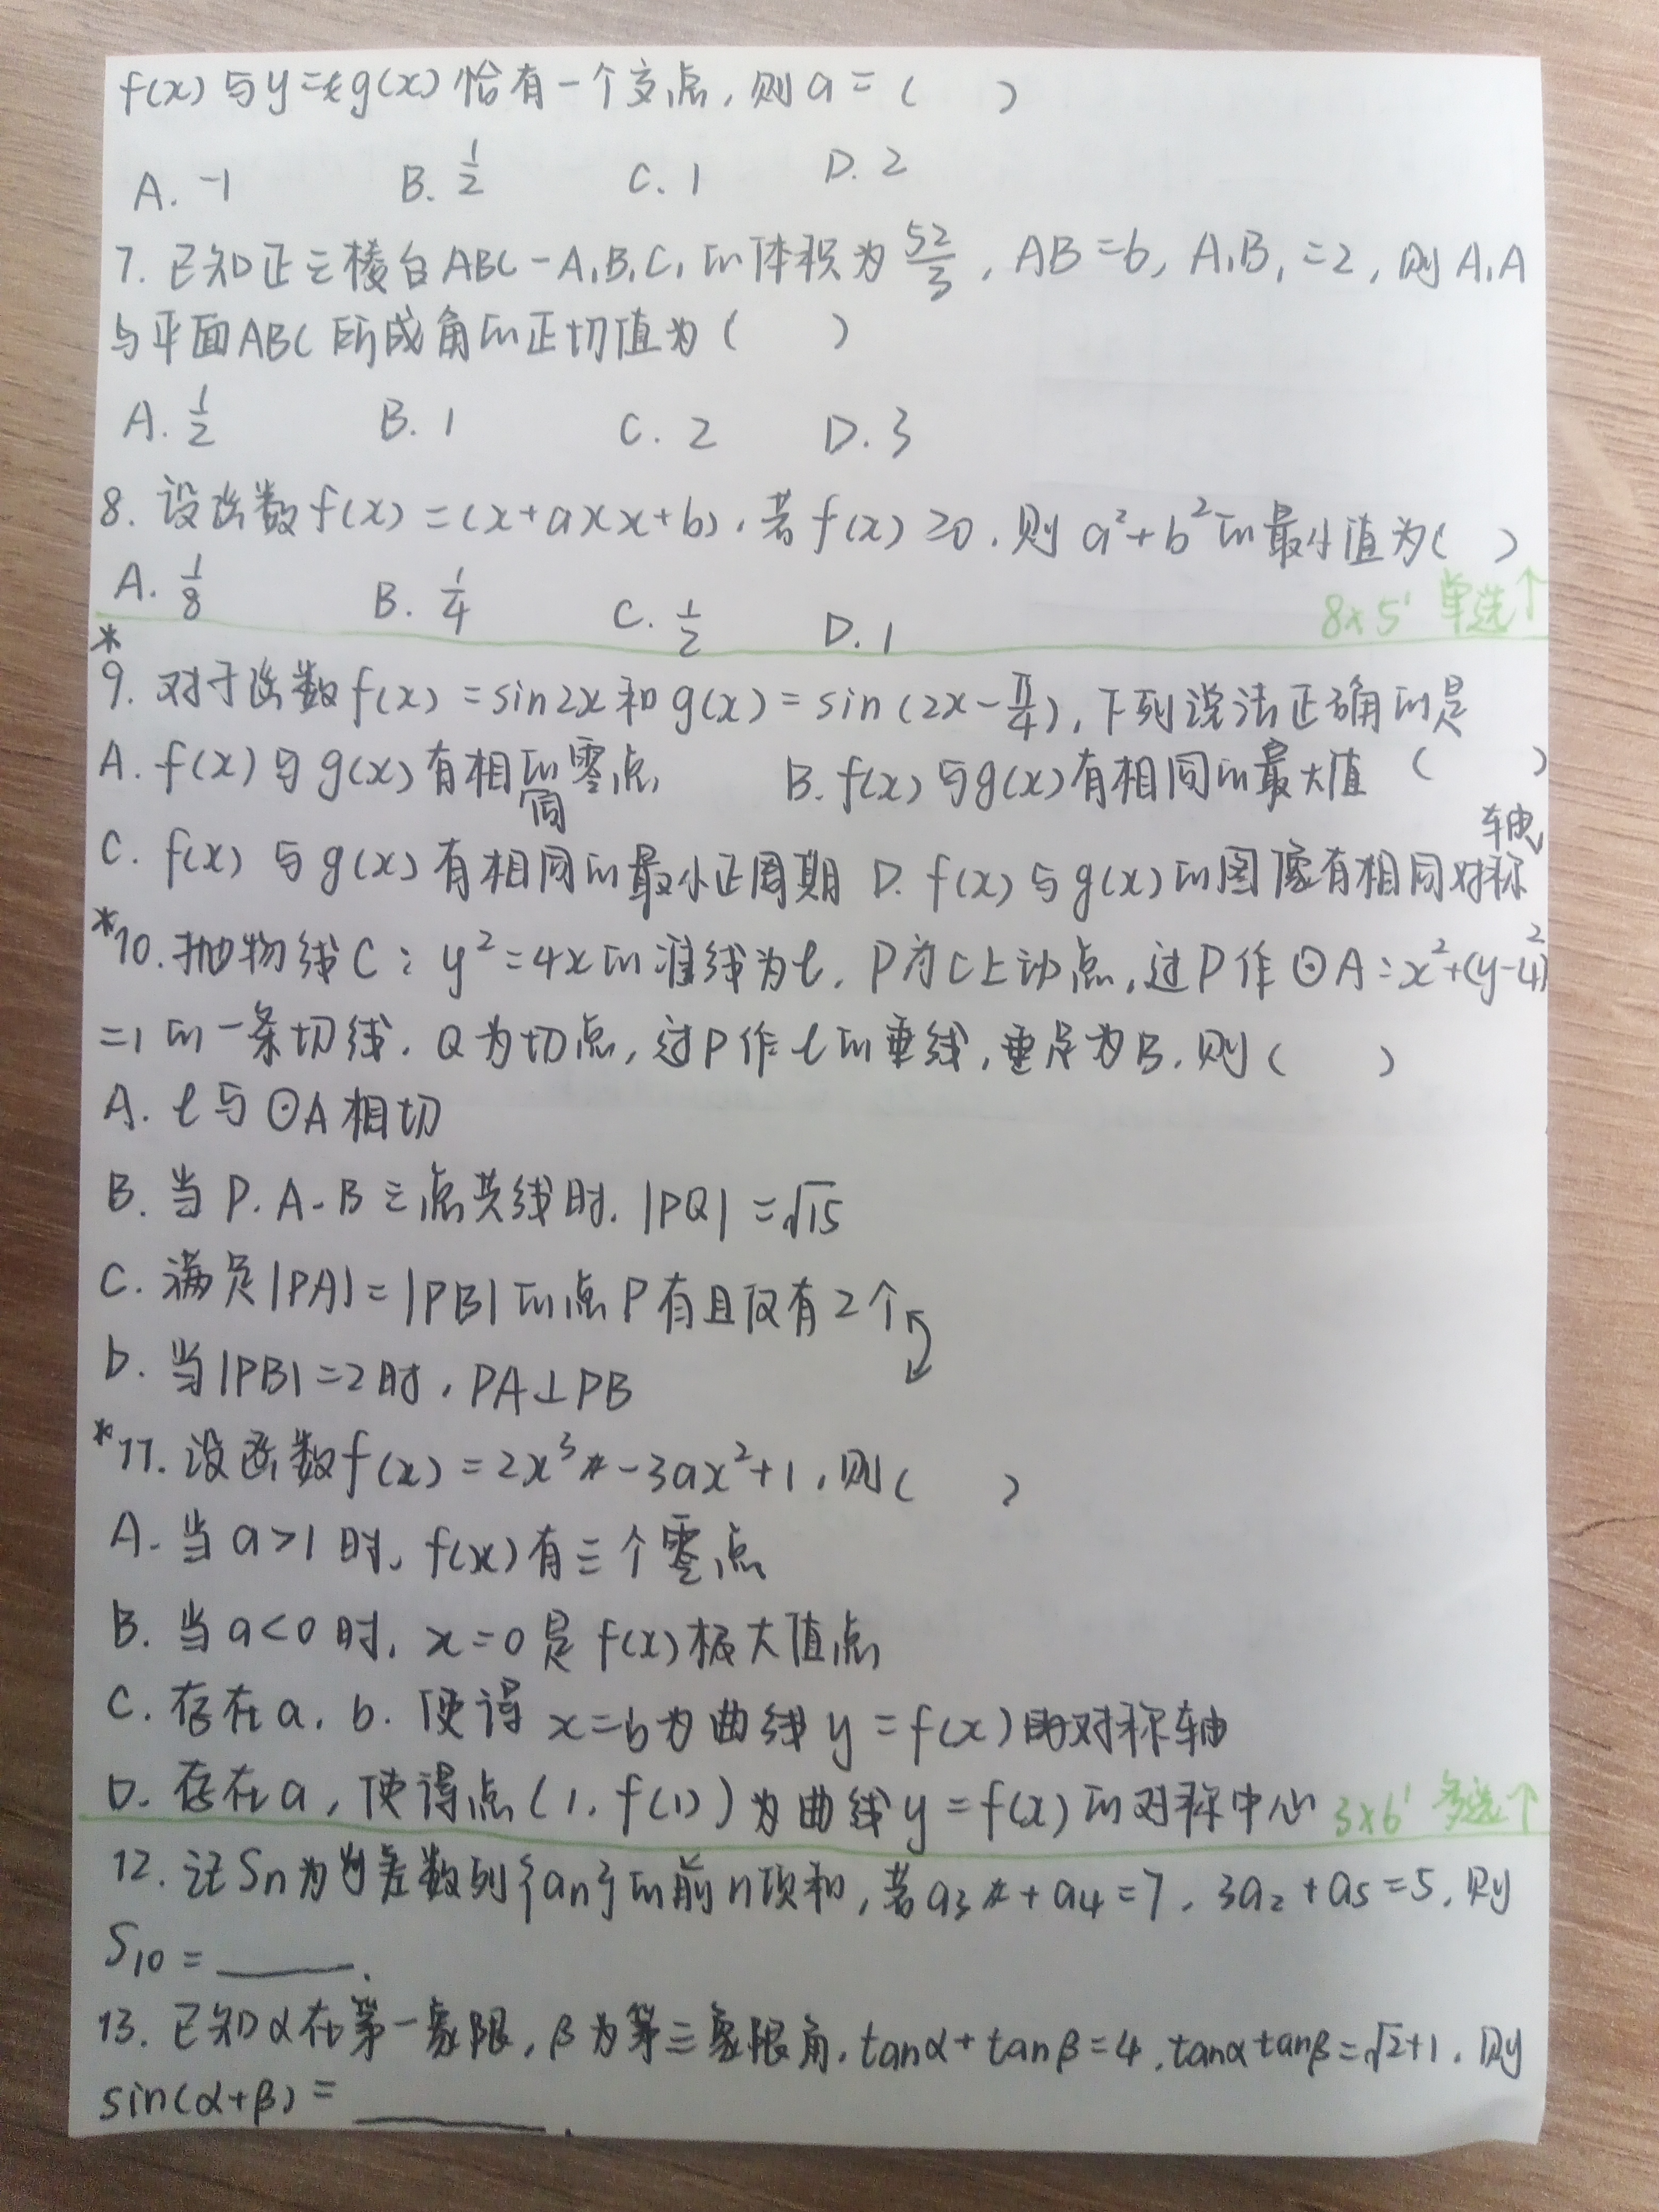 f(x)与y=g(x)恰有一个交点,则a=( )
A. -1 B. 1/2 C. 1 D. 2
7. 已知正三棱台ABC-A₁B₁C₁的体积为52/3, AB=6, A₁B₁=2, 则A₁A
与平面ABC所成角的正切值为( )
A. 1/2 B. 1 C. 2 D. 3
8. 设函数f(x)=(x+a)(x+b),若f(x)≥0,则a²+b²的最小值为( )
A. 1/8 B. 1/4 C. 1/2 D. 1
8×5' 单选↑
*
9. 对于函数f(x)=sin2x和g(x)=sin(2x-π/4),下列说法正确的是
A. f(x)与g(x)有相同的零点 B. f(x)与g(x)有相同的最大值 ( )
C. f(x)与g(x)有相同的最小正周期 D. f(x)与g(x)的图像有相同对称轴
*10. 抛物线C:y²=4x的准线为l,P为C上动点,过P作⊙A:x²+(y-4)²
=1的一条切线,Q为切点,过P作l的垂线,垂足为B,则( )
A. l与⊙A相切
B. 当P.A.B三点共线时,|PQ|=√15
C. 满足|PA|=|PB|的点P有且仅有2个
D. 当|PB|=2时,PA⊥PB
*11. 设函数f(x)=2x³-3ax²+1,则( )
A. 当a>1时,f(x)有三个零点
B. 当a<0时,x=0是f(x)极大值点
C. 存在a,b.使得x=b为曲线y=f(x)的对称轴
D. 存在a,使得点(1,f(1))为曲线y=f(x)的对称中心 3×6' 多选↑
12. 记Sn为等差数列{an}的前n项和,若a₃+a₄=7,3a₂+a₅=5,则
S₁₀=____.
13. 已知α在第一象限,β为第三象限角,tanα+tanβ=4,tanαtanβ=√2+1,则
sin(α+β)=____.